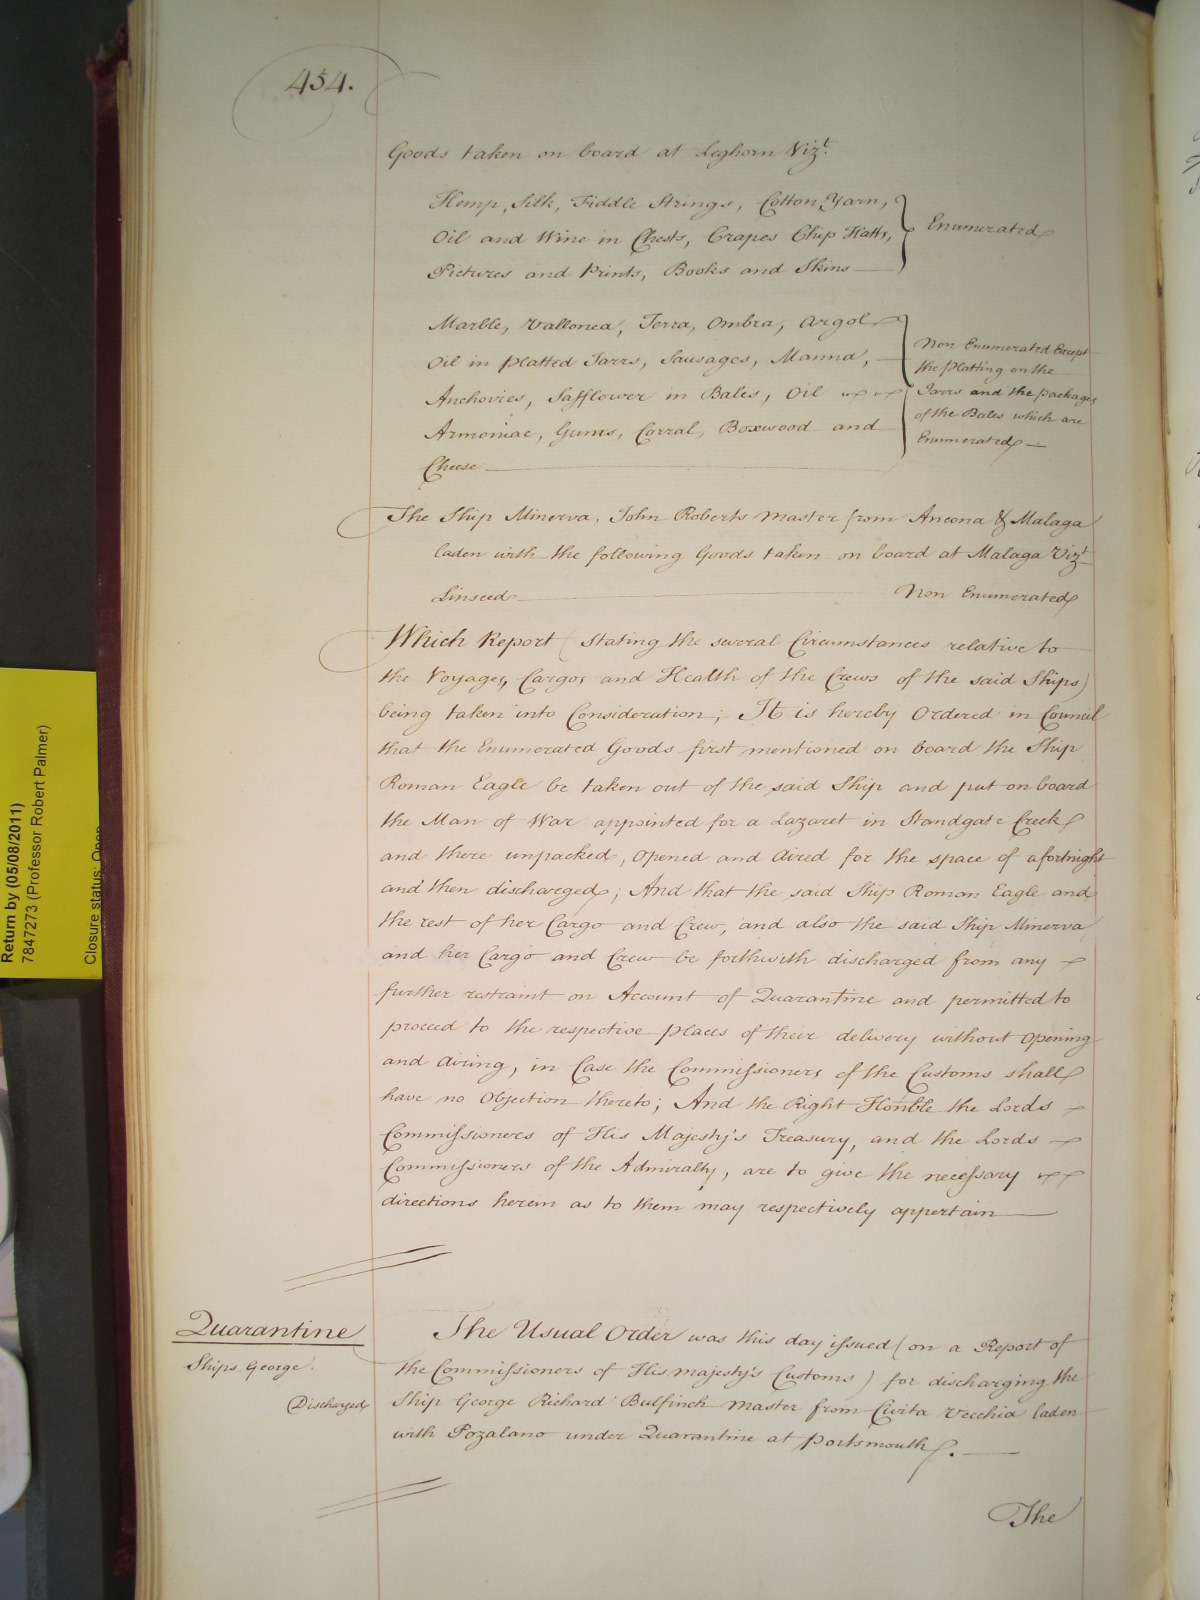 454.
Goods taken on board at Leghorn Vizt.
Hemp, Silk, Fiddle Strings, Cotton Yarn,
Oil and Wine in Chests, Crapes Chip Hatts,
Pictures and Prints, Books and Skins
Enumerated
Marble, Vallonea, Terra, Ombra, Argol
Oil in platted Jarrs, Sausages, Manna,
Anchovies, Safflower in Bales, Oil
Armoniac, Gums, Corral, Boxwood and
Cheese
Non Enumerated Except
the Platting on the
Jarrs and the packages
of the Bales which are
Enumerated
The Ship Minerva, John Roberts Master from Ancona & Malaga
laden with the following Goods taken on board at Malaga Vizt
Linseed Non Enumerated
Which Report (stating the several Circumstances relative to
the Voyages, Cargos and Health of the Crews of the said Ships)
being taken into Consideration; It is hereby Ordered in Council
that the Enumerated Goods first mentioned on board the Ship
Roman Eagle be taken out of the said Ship and put on board
the Man of War appointed for a Lazaret in Standgate Creek
and there unpacked, opened and aired for the space of a fortnight
and then discharged; And that the said Ship Roman Eagle and
the rest of her Cargo and Crew, and also the said Ship Minerva
and her Cargo and Crew be forthwith discharged from any
further restraint on Account of Quarantine and permitted to
proceed to the respective places of their delivery without opening
and airing, in Case the Commissioners of the Customs shall
have no Objection thereto; And the Right Honble the Lords
Commissioners of His Majesty's Treasury, and the Lords
Commissioners of the Admiralty, are to give the necessary
directions herein as to them may respectively appertain
Quarantine
Ships George
Discharged
The Usual Order was this day issued (on a Report of
the Commissioners of His Majesty's Customs) for discharging the
Ship George Richard Bulfinch Master from Civita Vecchia laden
with Pozalano under Quarantine at Portsmouth.
The
Return by (05/08/2011)
7847273 (Professor Robert Palmer)
Closure status: Open